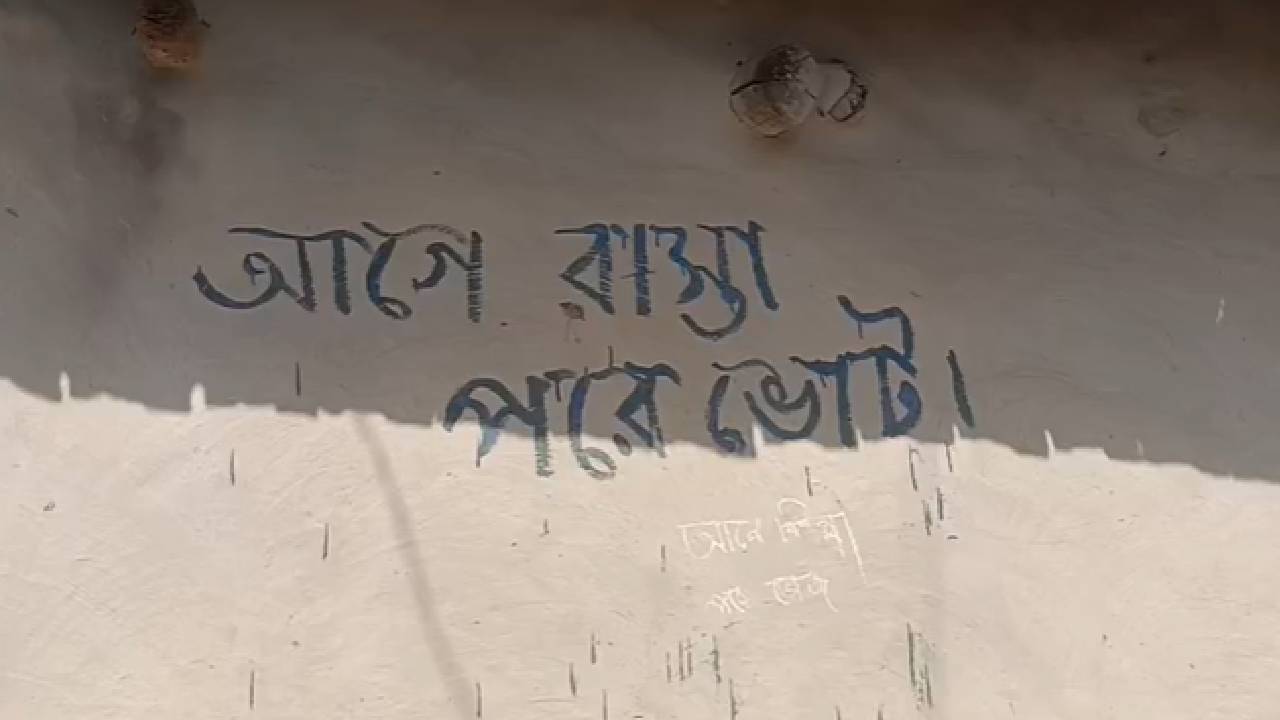 আগে রাস্তা
পরে ভোট।
আগে
পরে